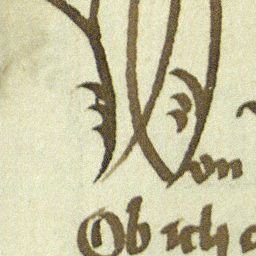 Von
Ob ich